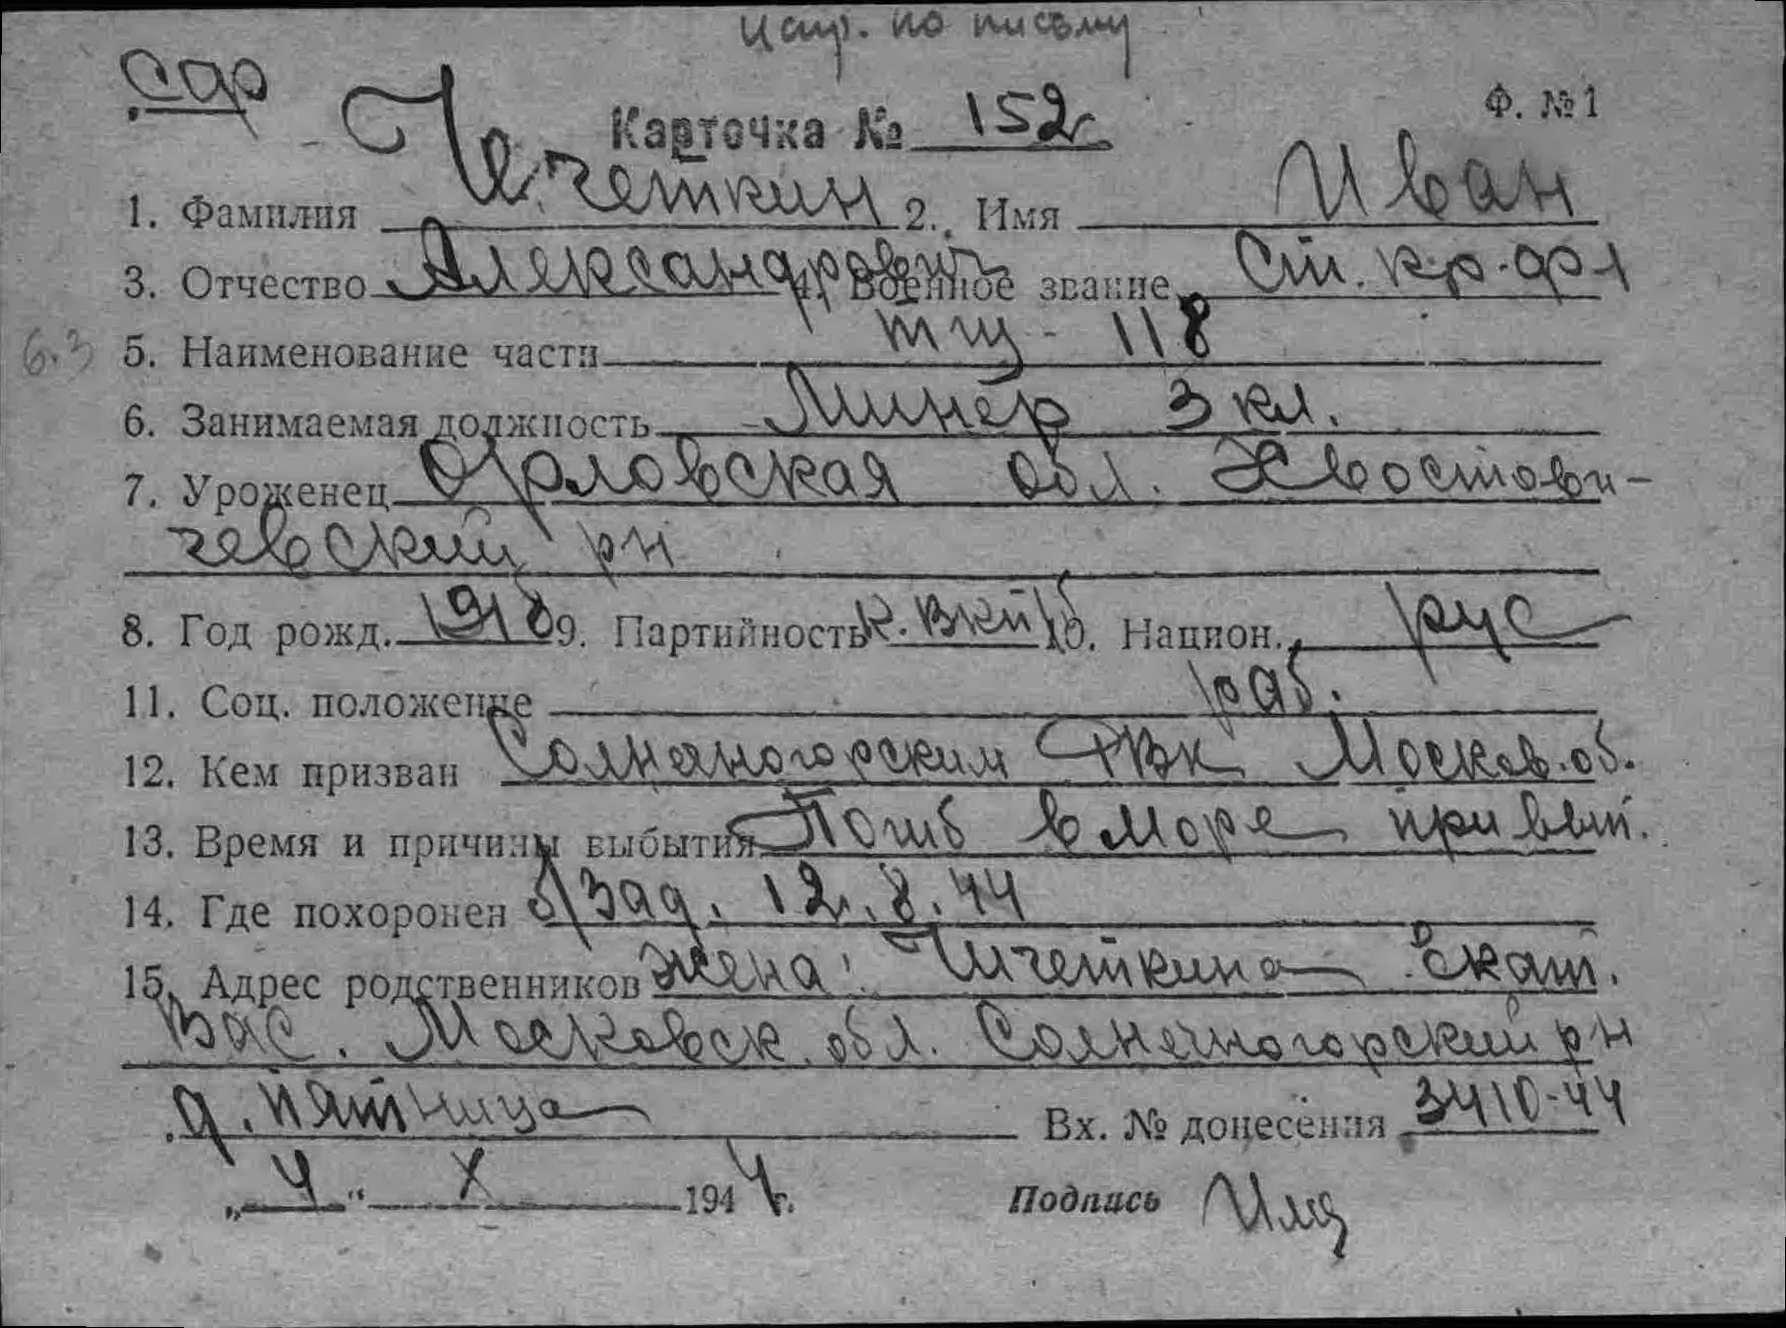 испр. по письму
сдр
Карточка № 152
Ф. №1
1. Фамилия Чечеткин 2. Имя Иван
3. Отчество Александрович 4. Военное звание Ст. кр-фл
5. Наименование части тщ - 118
6. Занимаемая должность Минер 3 кл.
7. Уроженец Орловская обл. Хвостови-
чевский рн
8. Год рожд. 1918 9. Партийность к. ВКП/б 10. Национ. рус
11. Соц. положение раб.
12. Кем призван Солнечногорским РВК Москов. об.
13. Время и причины выбытия Погиб в море при вып.
14. Где похоронен б/зад. 12.8.44
15. Адрес родственников жена: Чичеткина Екат.
Вас. Московск. обл. Солнечногорский рн
д. Пятница Вх. № донесения 3410-44
„4“ X 1944 г. Подпись